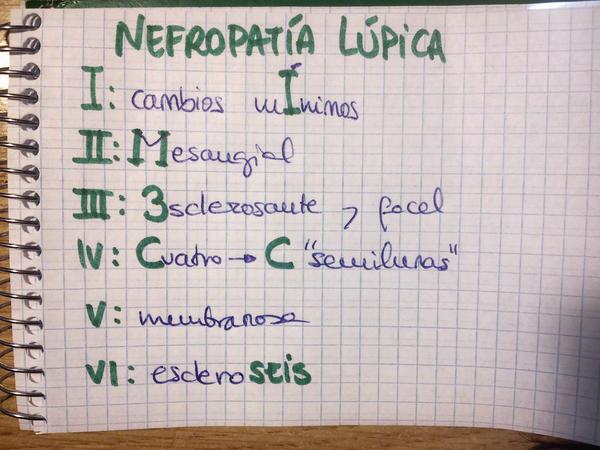 NEFROPATÍA LÚPICA
I: cambios mÍnimos
II: Mesangial
III: 3sclerosante y focal
IV: Cuatro → C "semilunas"
V: membranosa
VI: escleroseis